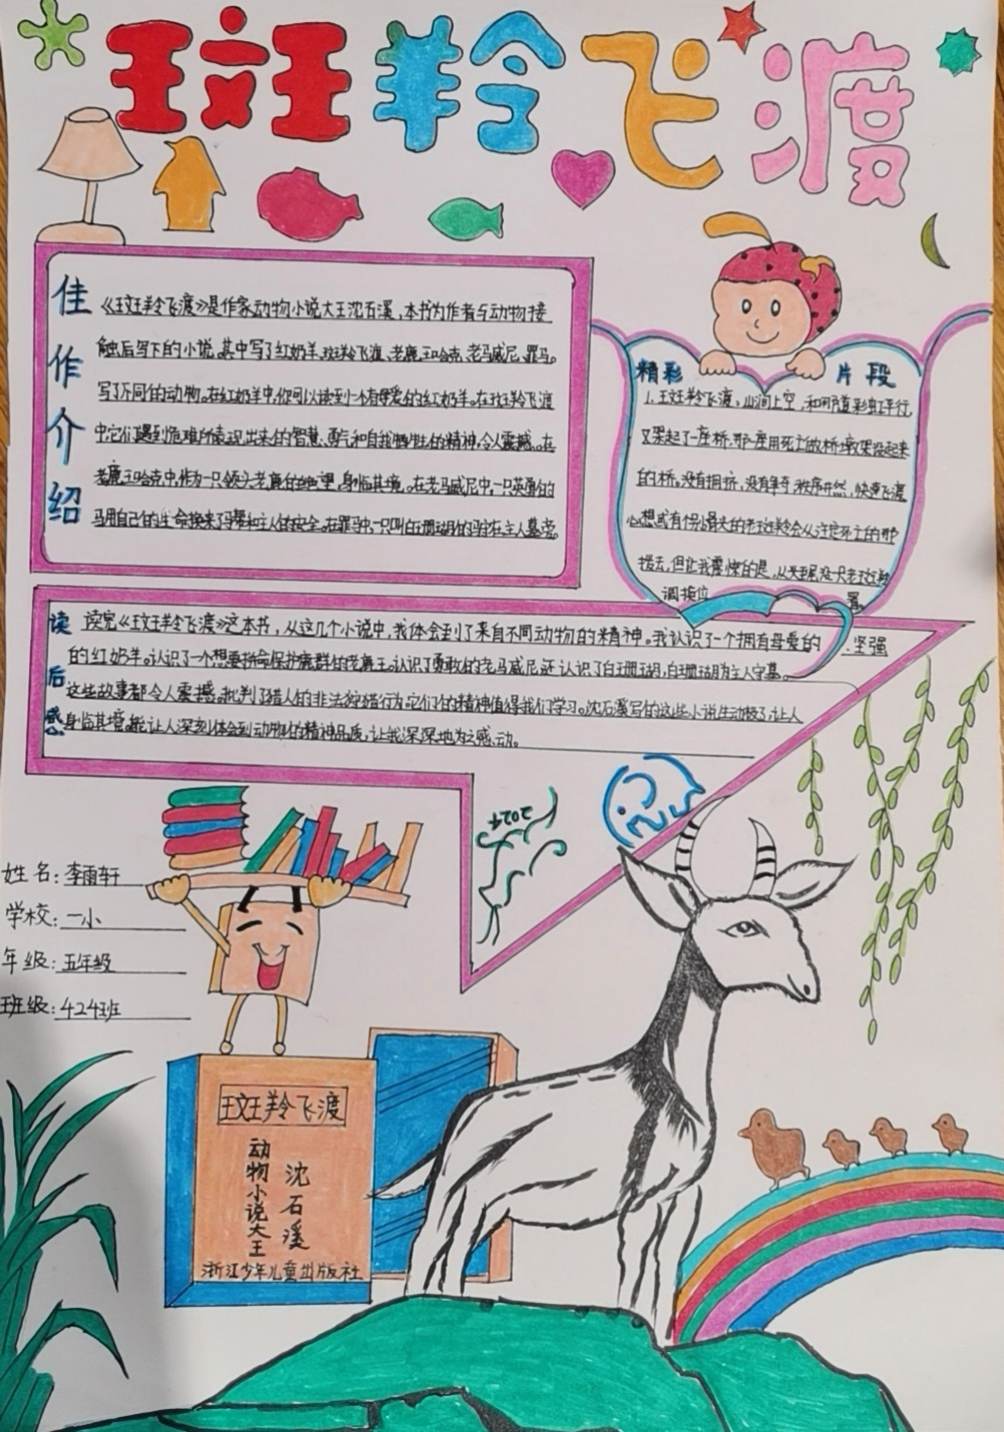 斑羚飞渡
佳作介绍
《斑羚飞渡》是作家动物小说大王沈石溪,本书为作者与动物接
触后写下的小说。其中写了红奶羊、斑羚飞渡、老鹿王哈克、老马威尼、罪马。
写了不同的动物。在红奶羊中,你可以读到一个有母爱的红奶羊。在斑羚飞渡
中,它们遇到危难所表现出来的智慧、勇气和自我牺牲的精神,令人震撼。在
老鹿王哈克中,作为一只领头老鹿的绝望,身临其境。在老马威尼中,一只英勇的
马用自己的生命换来了和主人的安全。在罪马中,一只叫白珊瑚的马在主人墓旁。
精彩片段
1.斑羚飞渡,山涧上空,和那道彩虹平行,
又架起了一座桥,那是一座用死亡做桥墩架设起来
的桥。没有拥挤,没有争夺,秩序井然,快速飞渡。
心想或有个别滑头的老斑羚会从注定死亡的那
拨去,但让我震惊的是,从头到尾没一只老斑羚
调换位置
读后感
读完《斑羚飞渡》这本书,从这几个小说中,我体会到了来自不同动物的精神。我认识了一个拥有母爱的、坚强
的红奶羊。认识了一个想要拼命保护鹿群的老鹿王。认识了勇敢的老马威尼,还认识了白珊瑚,白珊瑚为主人守墓。
这些故事都令人震撼。批判了猎人的非法狩猎行为。它们的精神值得我们学习。沈石溪写的这些小说生动极了,让人
身临其境。能让人深刻体会到动物的精神品质,让我深深地为之感动。
2024
姓名:李雨轩
学校:一小
年级:五年级
班级:424班
斑羚飞渡
动物小说大王
沈石溪
浙江少年儿童出版社